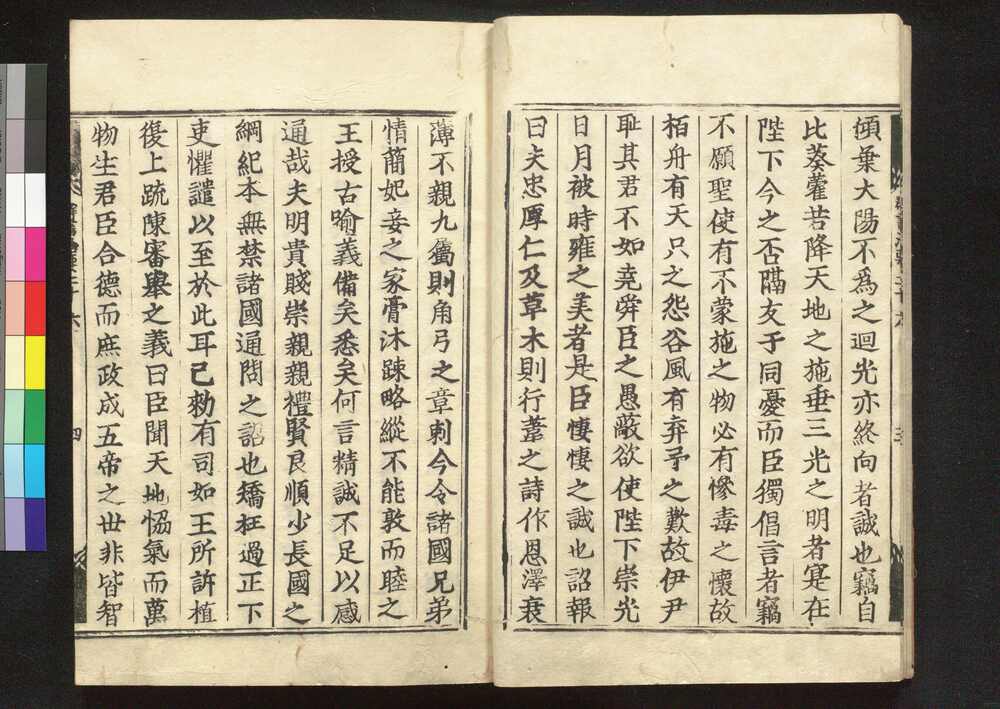 傾葉大陽不爲之迴光亦終向者誠也竊自
比葵藿若降天地之施垂三光之明者寔在
陛下今之否隔友于同憂而臣獨倡言者竊
不願聖使有不蒙施之物必有慘毒之懷故
栢舟有天只之怨谷風有弃予之歎故伊尹
耻其君不如堯舜臣之愚蔽欲使陛下崇光
日月被時雍之美者是臣悽悽之誠也詔報
曰夫忠厚仁及草木則行葦之詩作恩澤衰
薄不親九属則角弓之章刺今令諸國兄弟
情蕳妃妾之家膏沐踈略縱不能敦而睦之
王授古喻義備矣悉矣何言精誠不足以感
通哉夫明貴賤崇親親禮賢良順少長國之
綱紀本無禁諸國通問之詔也矯枉過正下
吏懼譴以至於此耳已勑有司如王所訴植
復上疏陳審舉之義曰臣聞天地恊氣而萬
物生君臣合德而庶政成五帝之世非皆智
四